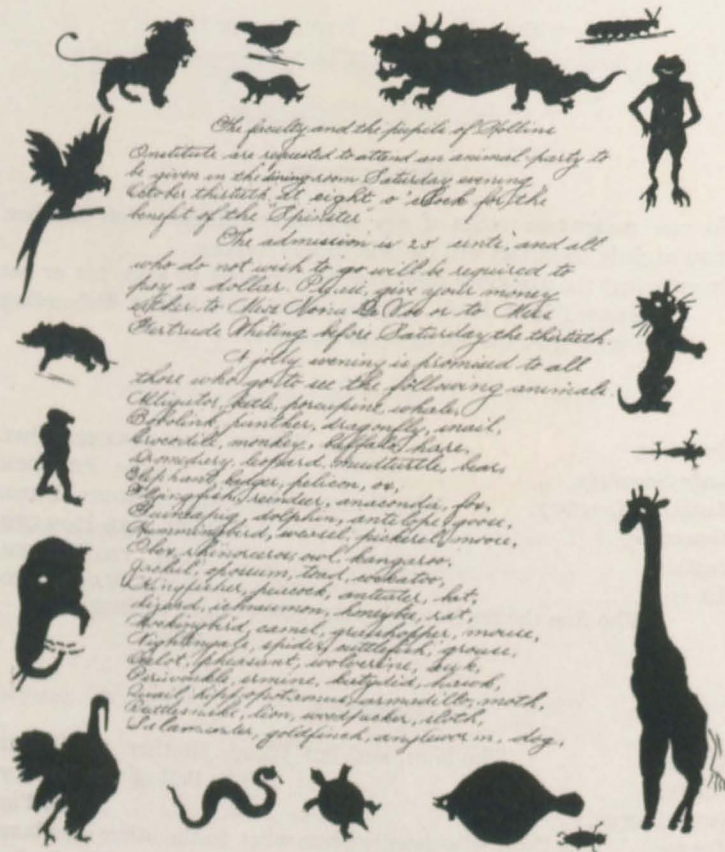 The faculty and the pupils of Hollins
Institute are requested to attend an animal-party to
be given in the dining room Saturday evening
October thirtieth at eight o'clock for the
benefit of the "Spinster"
The admission is 25 cents, and all
who do not wish to go will be required to
pay a dollar. Please give your money
either to Miss Nona De Vos or to Miss
Gertrude Whiting before Saturday the thirtieth.
A jolly evening is promised to all
those who go to see the following animals.
Alligator, porcupine, whale,
Bobolink, panther, dragonfly, snail,
Crocodile, monkey, buffalo, hare,
Dromedery, leopard, mudturtle, bear,
Elephant, badger, pelicon, ox,
Flyingfish, reindeer, anaconda, fox,
Guineapig, dolphin, antelope, goose,
Hummingbird, weasel, pickerel, moose,
Ibex, rhinocerous, owl, kangaroo,
Jackal, opossum, toad, cockatoo,
Kingfisher, peacock, anteater, bat,
Lizard, ichneumon, honeybee, rat,
Mockingbird, camel, grasshopper, mouse,
Nightengale, spider, cuttlefish, grouse,
Ocelot, pheasant, wolverine, auk,
Periwinkle, ermine, katydid, hawk,
Quail, hippopotamus, armadillo, moth,
Rattlesnake, lion, woodpecker, sloth,
Salamander, goldfinch, angleworm, dog,